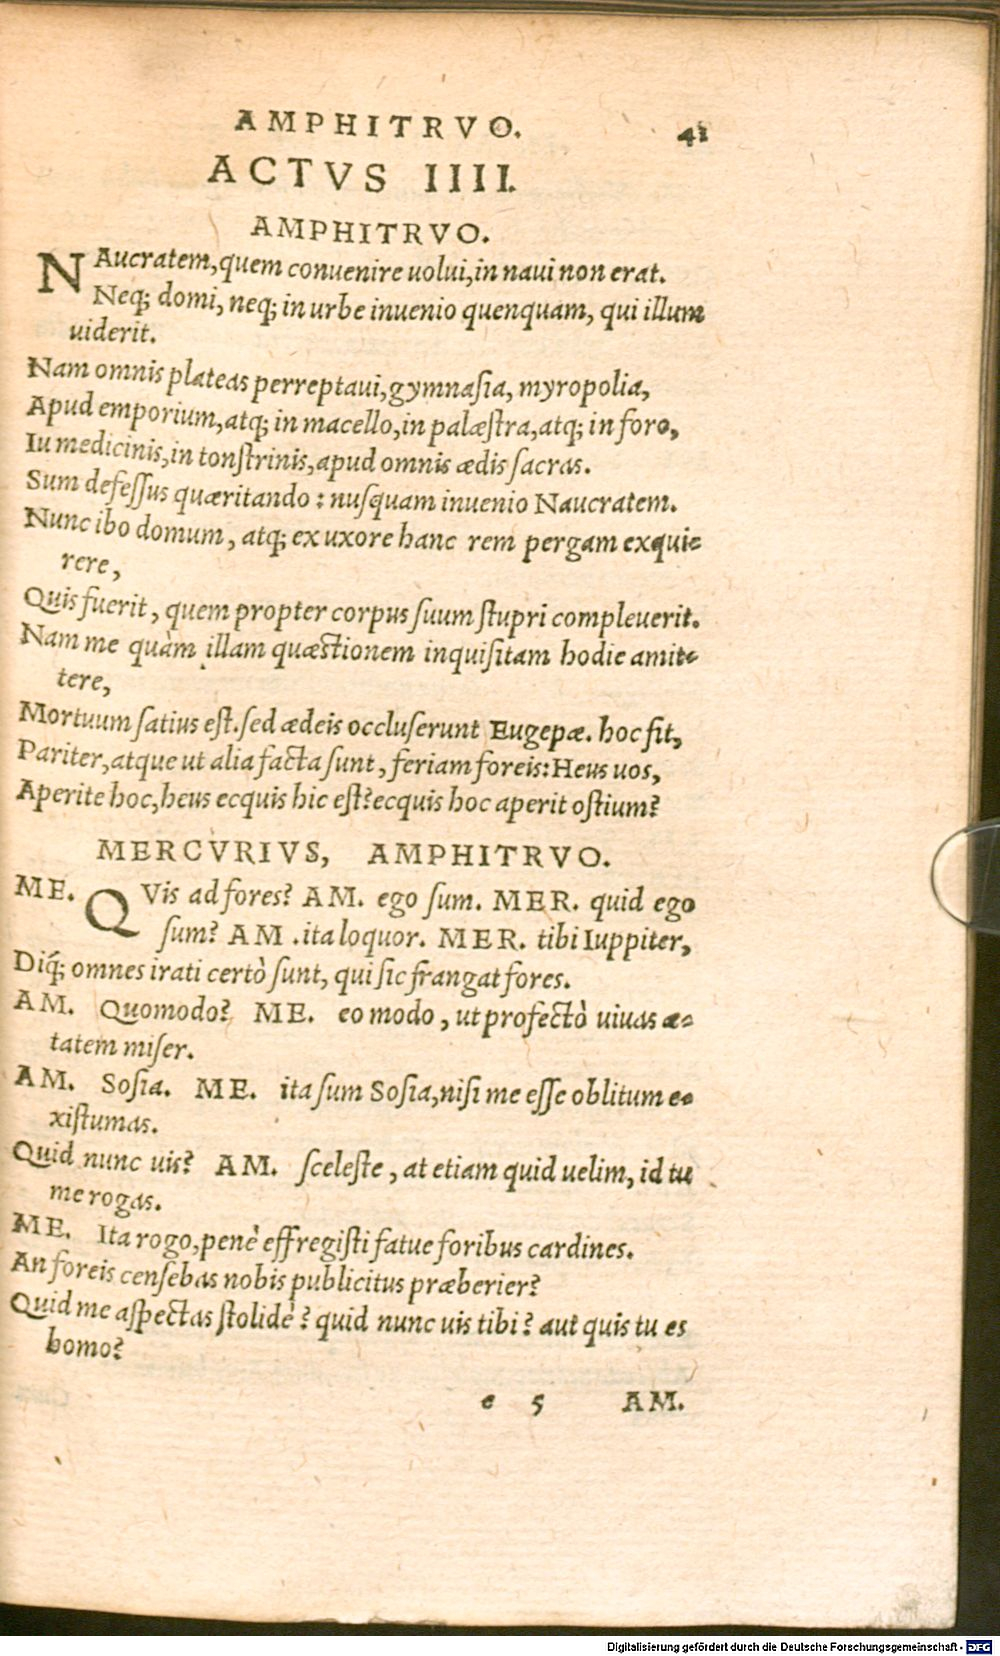 AMPHITRVO. 41
ACTVS IIII.
AMPHITRVO.
NAucratem, quem conuenire uolui, in naui non erat.
Neq; domi, neq; in urbe inuenio quenquam, qui illum
uiderit.
Nam omnis plateas perreptaui, gymnaſia, myropolia,
Apud emporium, atq; in macello, in palæſtra, atq; in foro,
Iu medicinis, in tonſtrinis, apud omnis ædis ſacras.
Sum defeſſus quæritando: nuſquam inuenio Naucratem.
Nunc ibo domum, atq; ex uxore hanc rem pergam exqui-
rere,
Quis fuerit, quem propter corpus ſuum ſtupri compleuerit.
Nam me quàm illam quæſtionem inquiſitam hodie amit-
tere,
Mortuum ſatius eſt. ſed ædeis occluſerunt Eugepæ. hoc fit,
Pariter, atque ut alia facta ſunt, feriam foreis: Heus uos,
Aperite hoc, heus ecquis hic eſt? ecquis hoc aperit oſtium?
MERCVRIVS, AMPHITRVO.
ME. QVis ad fores? AM. ego ſum. MER. quid ego
ſum? AM. ita loquor. MER. tibi Iuppiter,
Diq́; omnes irati certò ſunt, qui ſic frangat fores.
AM. Quomodo? ME. eo modo, ut profectò uiuas æ-
tatem miſer.
AM. Soſia. ME. ita ſum Soſia, niſi me eſſe oblitum e-
xiſtumas.
Quid nunc uis? AM. ſceleſte, at etiam quid uelim, id tu
me rogas.
ME. Ita rogo, penè effregiſti fatue foribus cardines.
An foreis cenſebas nobis publicitus præberier?
Quid me aſpectas ſtolidè? quid nunc uis tibi? aut quis tu es
homo?
e 5 AM.
Digitalisierung gefördert durch die Deutsche Forschungsgemeinschaft - DFG